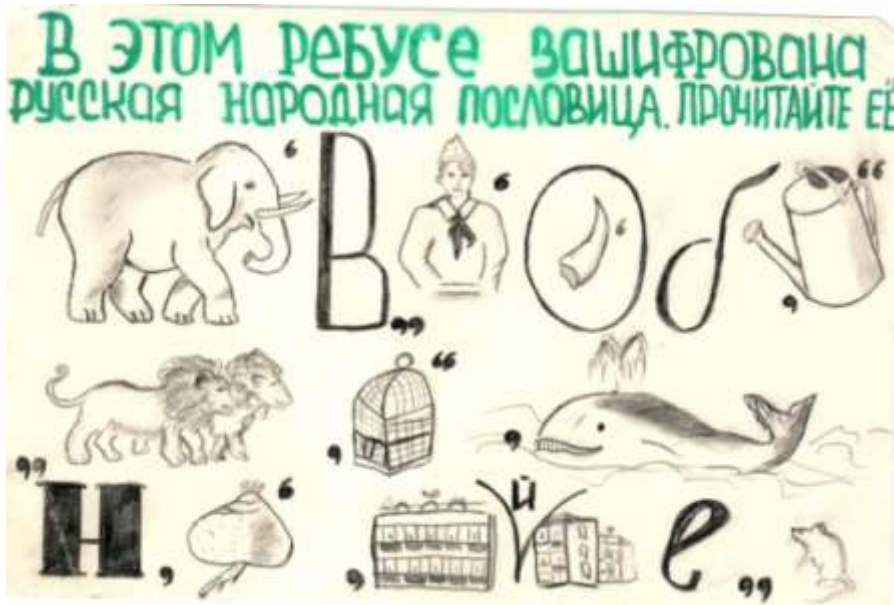 В ЭТОМ РЕБУСе ЗАШИФРОВАНА
РУССКАЯ НАРОДНАЯ ПОСЛОВИЦА. ПРОЧИТАЙТЕ ЕЁ
‘ В ,, ‘ О ‘ б , “
,, , “ ,
Н , ‘ , й V е ,,